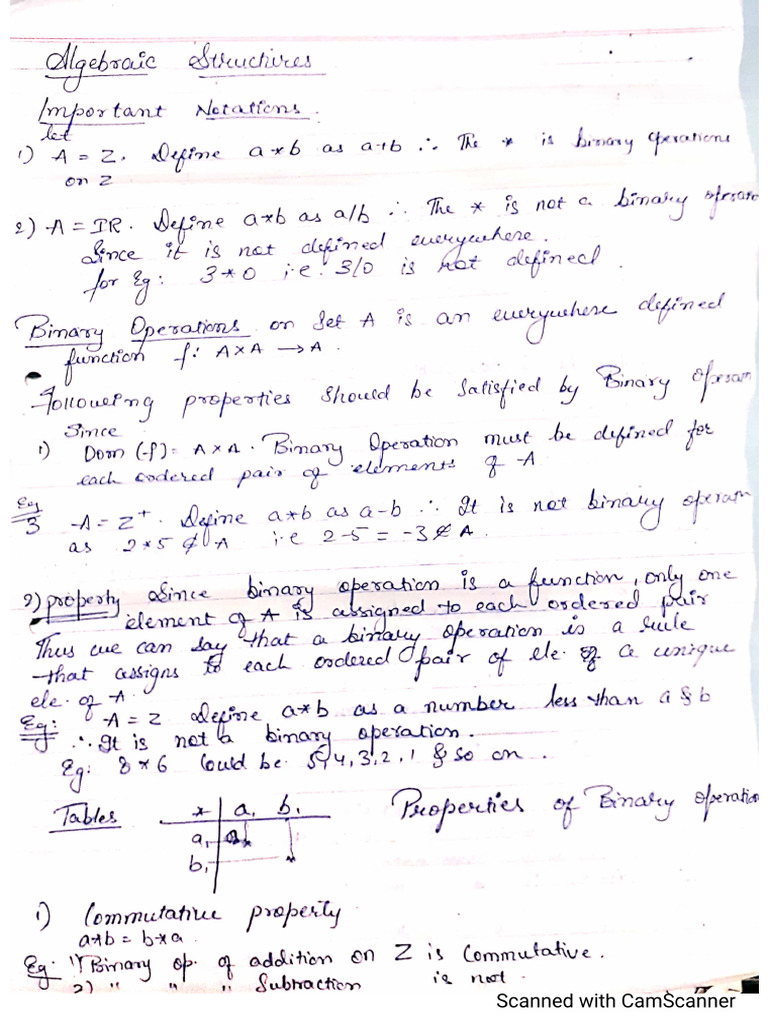 Algebraic Structures
Important Notations.
let
1) A = Z. Define a*b as a+b ∴ The * is binary operations
on Z
2) A = IR. Define a*b as a/b ∴ The * is not a binary
Since it is not defined everywhere.
for Eg: 3*0 i.e. 3/0 is not defined.
Binary Operations on Set A is an everywhere defined
function f: A×A → A.
Following properties should be satisfied by Binary
Since
1) Dom (f) = A×A. Binary Operation must be defined for
each ordered pair of elements of A
Eg 3 A = Z⁺. Define a*b as a-b ∴ It is not binary
as 2*5 ∉ A i.e 2-5 = -3 ∉ A.
2) property Since binary operation is a function, only one
element of A is assigned to each ordered pair
Thus we can say that a binary operation is a rule
that assigns to each ordered pair of ele. of a unique
ele. of A.
Eg: A = Z Define a*b as a number less than a & b
∴ It is not a binary operation.
Eg: 8*6 could be 5, 4, 3, 2, 1 & so on.
Tables * a, b, Properties of Binary
a,
b,
1) Commutative property
a*b = b*a.
Eg: 1) Binary op. of addition on Z is Commutative.
2) " " " Subtraction is not.
Scanned with CamScanner